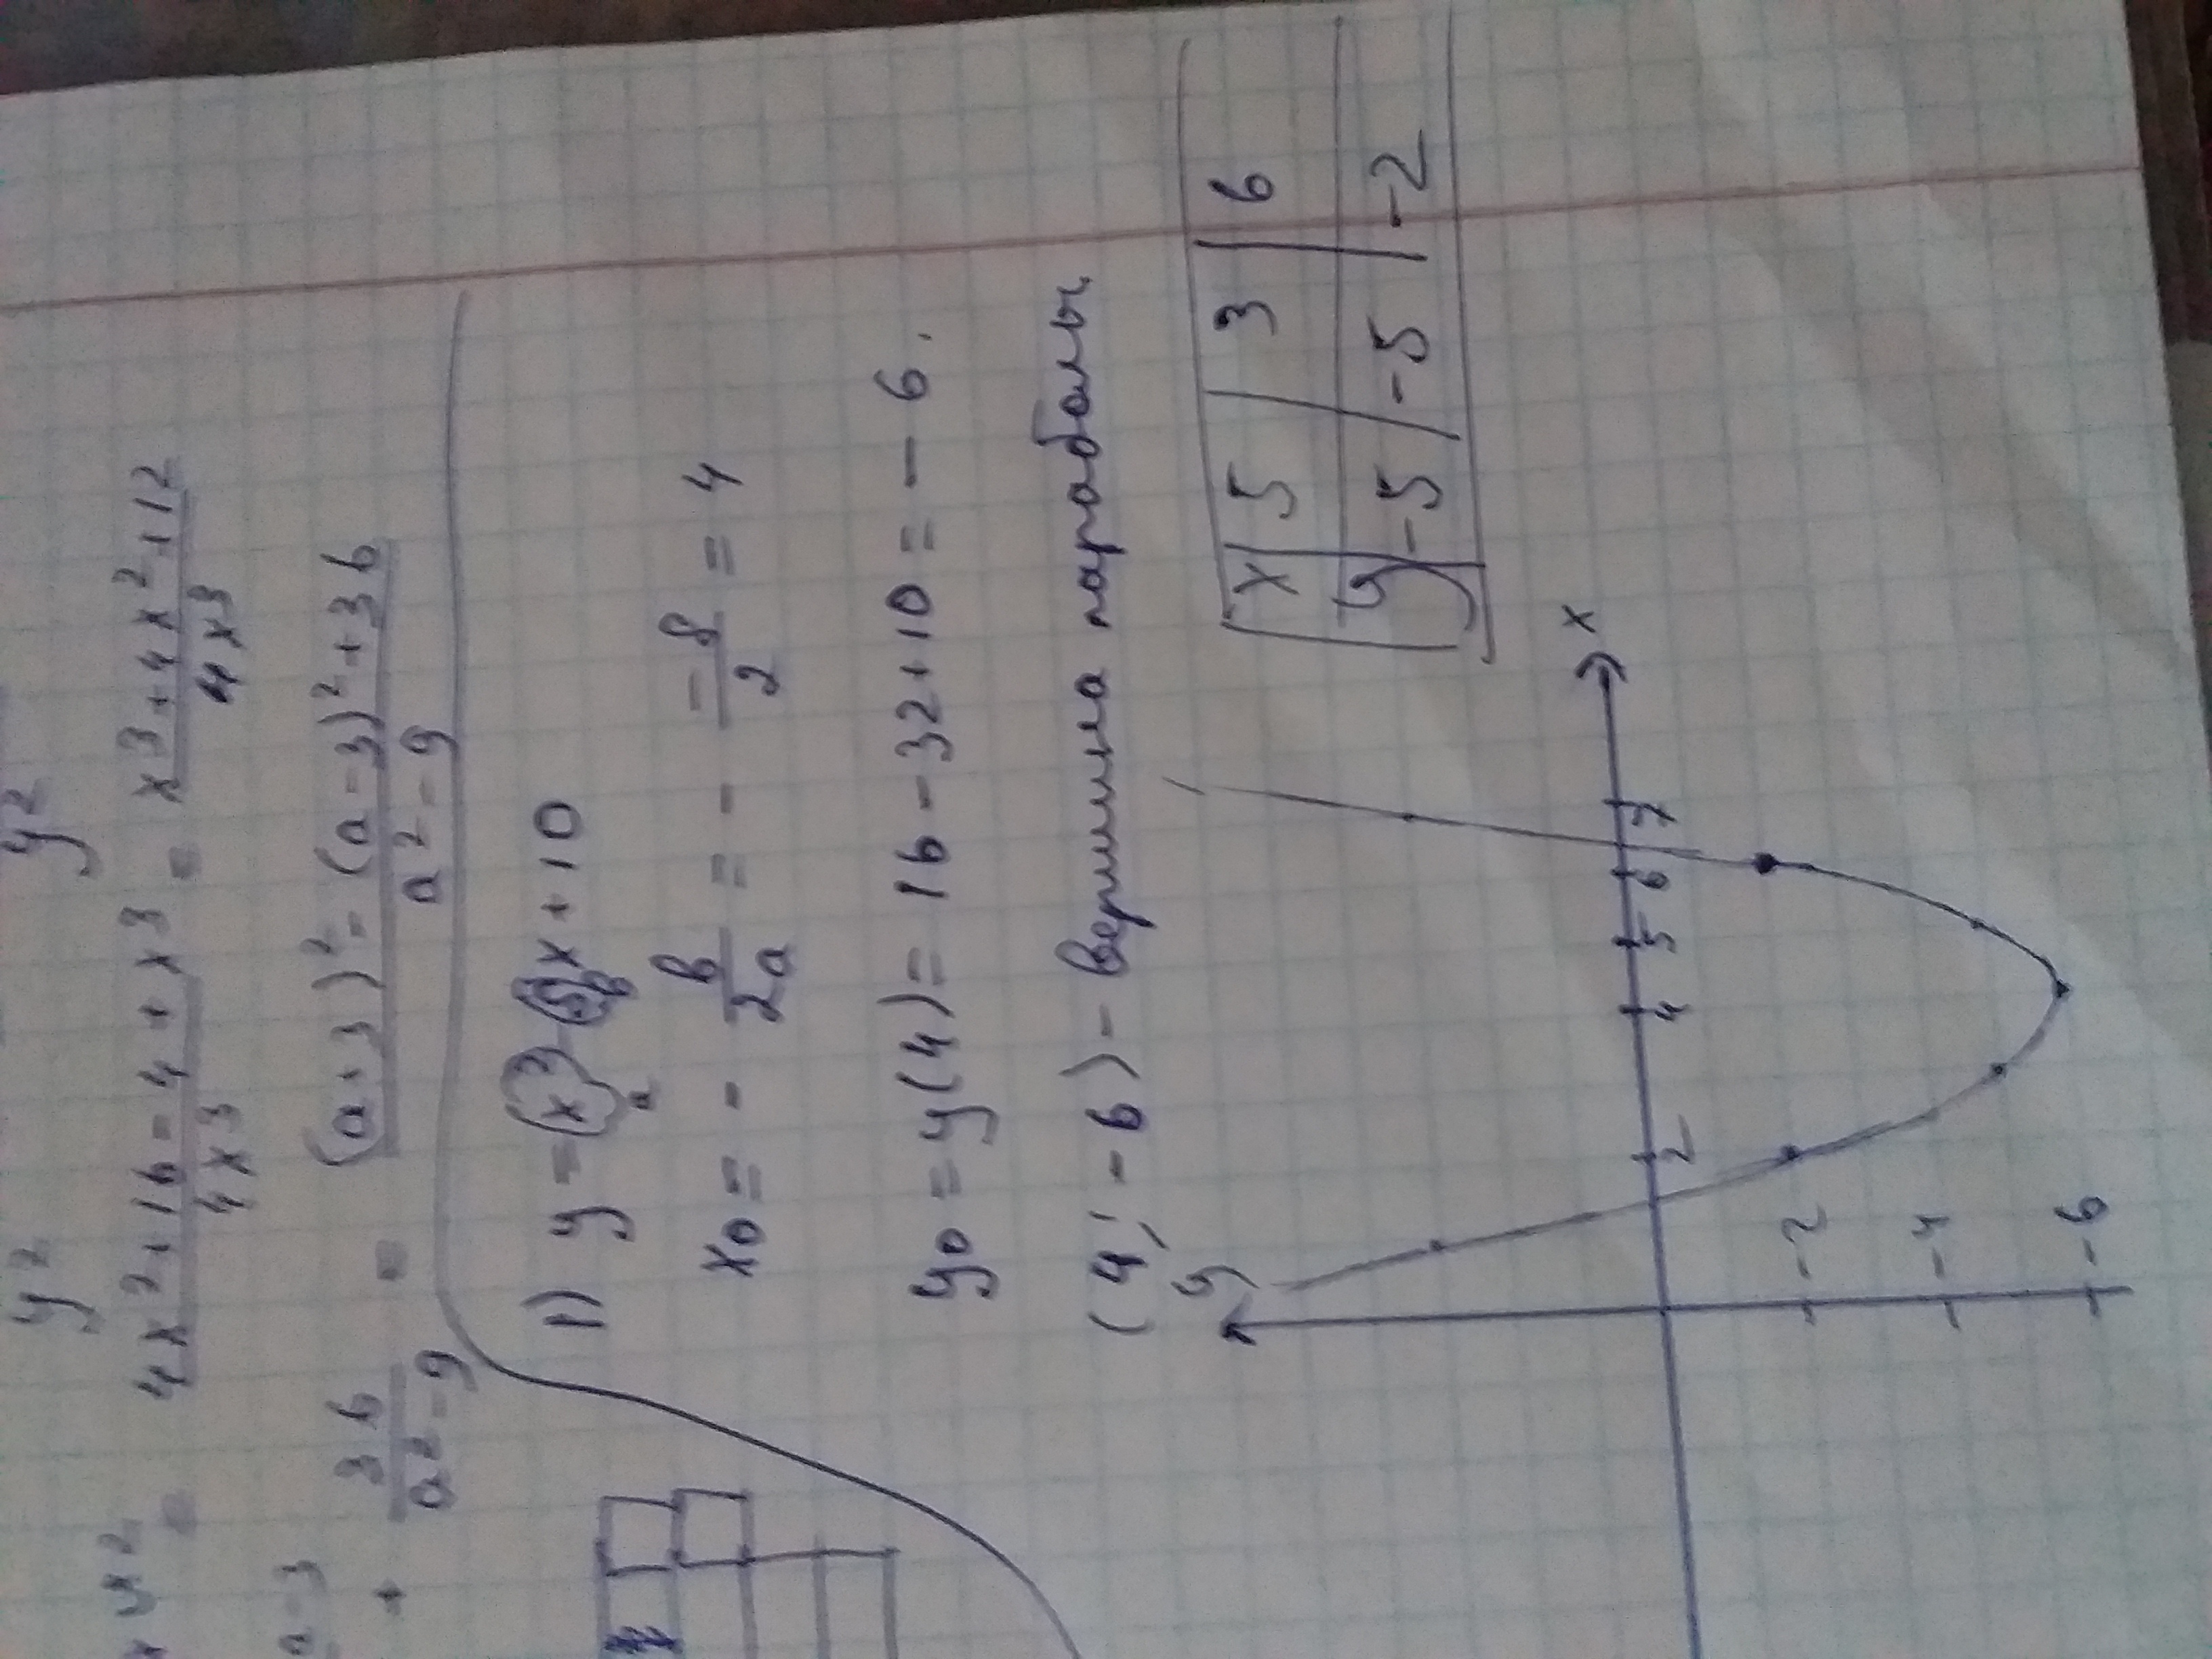 y² y²
4x²+16-4+x³ / 4x³ = x³+4x²+12 / 4x³
a-3
+ 36 / a²-9 = (a+3)²-(a-3)²+36 / a²-9
1) y=x²-8x+10
a b
x₀ = - b/2a = - -8/2 = 4
y₀ = y(4) = 16-32+10 = -6.
(4; -6) - вершина параболы
x 5 3 6
y -5 -5 -2
y
x
2 4 5 6 7
-2
-4
-6